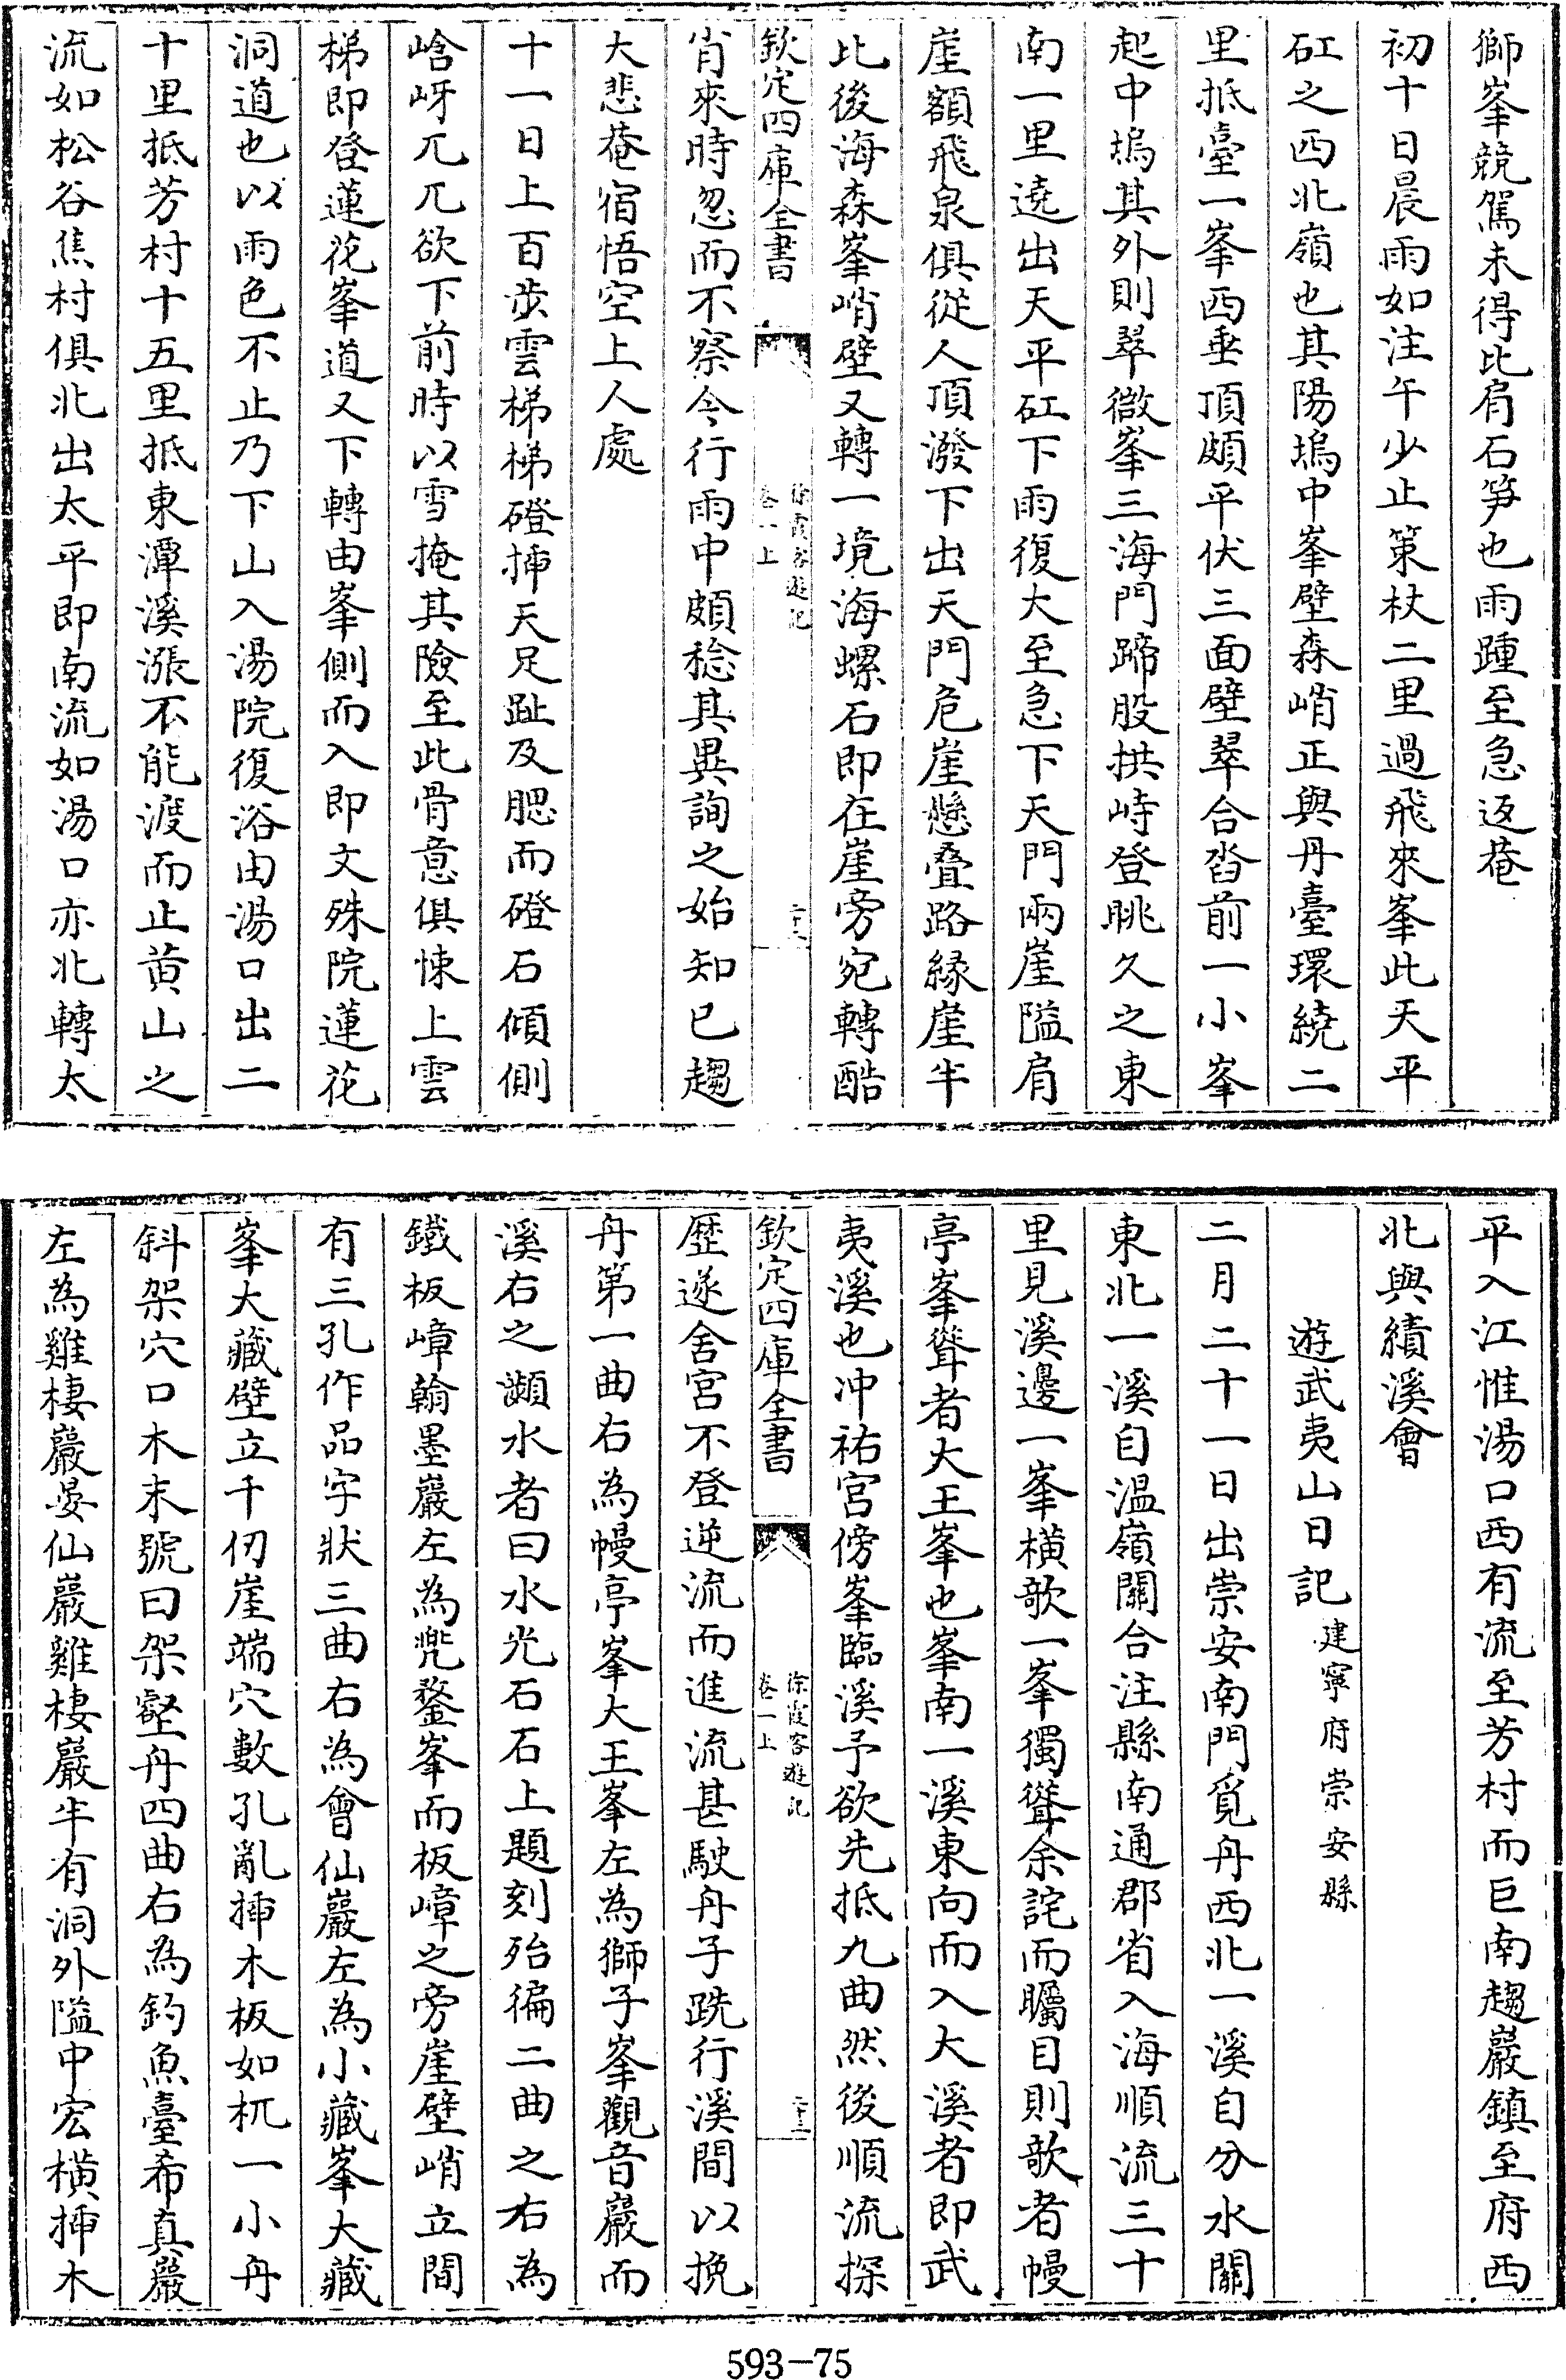 獅峯競駕未得比肩石笋也雨踵至急返菴
初十日晨雨如注午少止策杖二里過飛來峯此天平
矼之西北嶺也其陽塢中峯壁森峭正與丹臺環繞二
里抵臺一峯西垂頂頗平伏三面壁翠合沓前一小峯
起中塢其外則翠微峯三海門蹄股拱峙登眺久之東
南一里遶出天平矼下雨復大至急下天門兩崖隘肩
崖額飛泉俱從人頂潑下出天門危崖懸疊路緣崖半
比後海森峯峭壁又轉一境海螺石即在崖旁宛轉酷
欽定四庫全書
徐霞客遊記
卷一上
肖來時忽而不察今行雨中頗稔其異詢之始知已趨
大悲菴宿悟空上人處
十一日上百步雲梯梯磴揷天足趾及腮而磴石傾側
崡岈兀兀欲下前時以雪掩其險至此骨意俱悚上雲
梯即登蓮花峯道又下轉由峯側而入即文殊院蓮花
洞道也以雨色不止乃下山入湯院復浴由湯口出二
十里抵芳村十五里抵東潭溪漲不能渡而止黄山之
流如松谷焦村俱北出太平即南流如湯口亦北轉太
平入江惟湯口西有流至芳村而巨南趨巖鎮至府西
北與績溪會
遊武夷山日記建寧府崇安縣
二月二十一日出崇安南門覓舟西北一溪自分水關
東北一溪自温嶺關合注縣南通郡省入海順流三十
里見溪邊一峯橫欹一峯獨聳余詫而矚目則欹者幔
亭峯聳者大王峯也峯南一溪東向而入大溪者即武
夷溪也冲祐宫傍峯臨溪予欲先抵九曲然後順流探
欽定四庫全書
徐霞客遊記
卷一上
二十三
歴遂舍宫不登逆流而進流甚駛舟子跣行溪間以挽
舟第一曲右為幔亭峯大王峯左為獅子峯觀音巖而
溪右之瀕水者曰水光石石上題刻殆徧二曲之右為
鐵板嶂翰墨巖左為兠鍪峯而板嶂之旁崖壁峭立間
有三孔作品字狀三曲右為會仙巖左為小藏峯大藏
峯大藏壁立千仞崖端穴數孔亂揷木板如杌一小舟
斜架穴口木末號曰架壑舟四曲右為釣魚臺希真巖
左為雞棲巖晏仙巖雞棲巖半有洞外隘中宏橫揷木
593-75